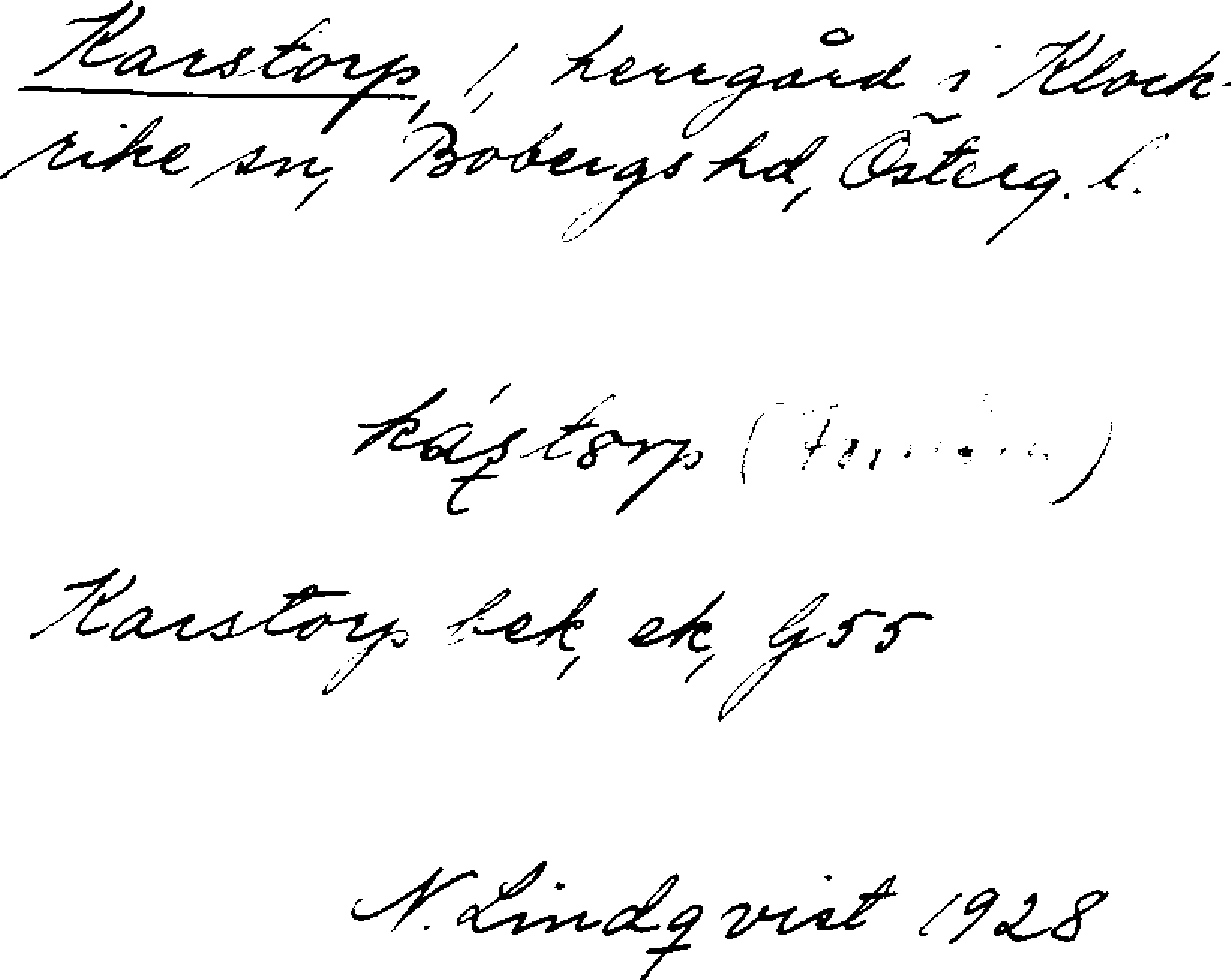 Karstorp, 1, herrgård i Klock-
rike sn, Bobergs hd, Österg. l.
Karstorp bek, ek, G55
N. Lindqvist 1928